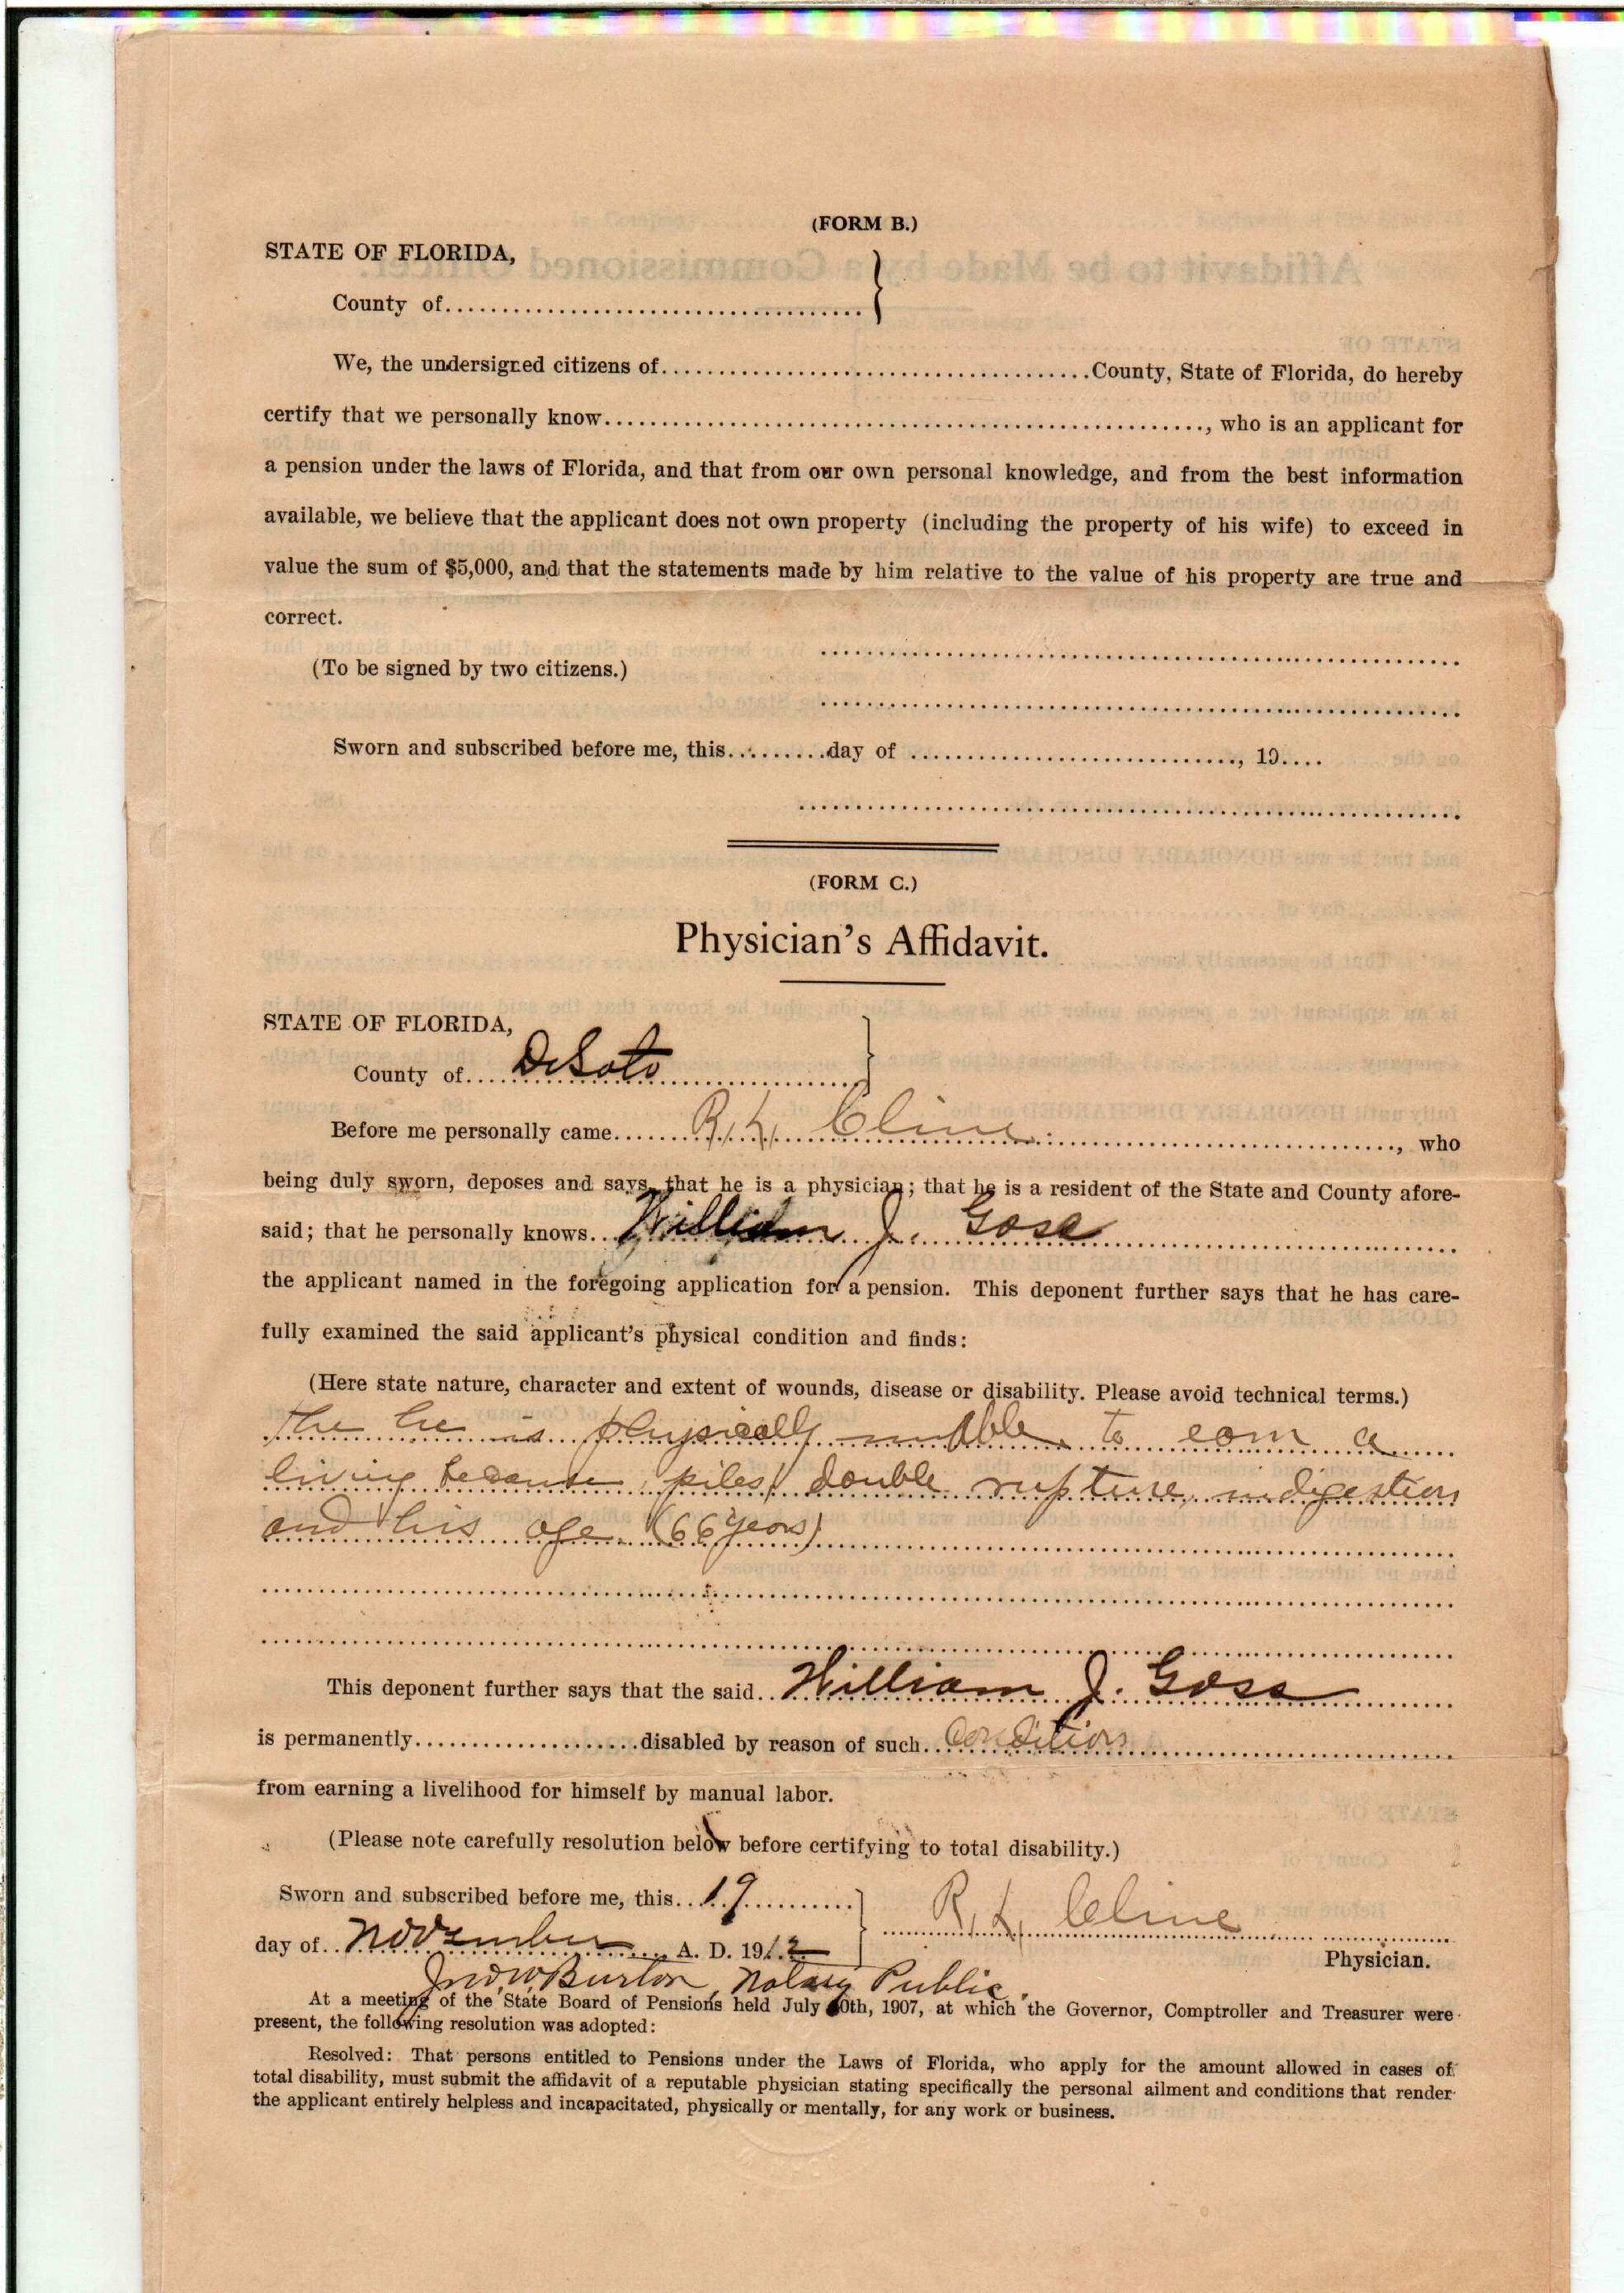 (FORM B.)
STATE OF FLORIDA,
County of
We, the undersigned citizens of County, State of Florida, do hereby
certify that we personally know , who is an applicant for
a pension under the laws of Florida, and that from our own personal knowledge, and from the best information
available, we believe that the applicant does not own property (including the property of his wife) to exceed in
value the sum of $5,000, and that the statements made by him relative to the value of his property are true and
correct.
(To be signed by two citizens.)
Sworn and subscribed before me, this day of , 19
(FORM C.)
Physician's Affidavit.
STATE OF FLORIDA,
County of DeSoto
Before me personally came R. L. Cline , who
being duly sworn, deposes and says, that he is a physician; that he is a resident of the State and County afore-
said; that he personally knows William J. Goss
the applicant named in the foregoing application for a pension. This deponent further says that he has care-
fully examined the said applicant's physical condition and finds:
(Here state nature, character and extent of wounds, disease or disability. Please avoid technical terms.)
the he is physically unable to earn a
living because piles, double rupture, indigestion
and his age (66 years)
This deponent further says that the said William J. Goss
is permanently disabled by reason of such condition
from earning a livelihood for himself by manual labor.
(Please note carefully resolution below before certifying to total disability.)
Sworn and subscribed before me, this 19
day of November A. D. 1912
R. L. Cline
Physician.
Jno W Burton, Notary Public.
At a meeting of the State Board of Pensions held July 0th, 1907, at which the Governor, Comptroller and Treasurer were
present, the following resolution was adopted:
Resolved: That persons entitled to Pensions under the Laws of Florida, who apply for the amount allowed in cases of
total disability, must submit the affidavit of a reputable physician stating specifically the personal ailment and conditions that render
the applicant entirely helpless and incapacitated, physically or mentally, for any work or business.